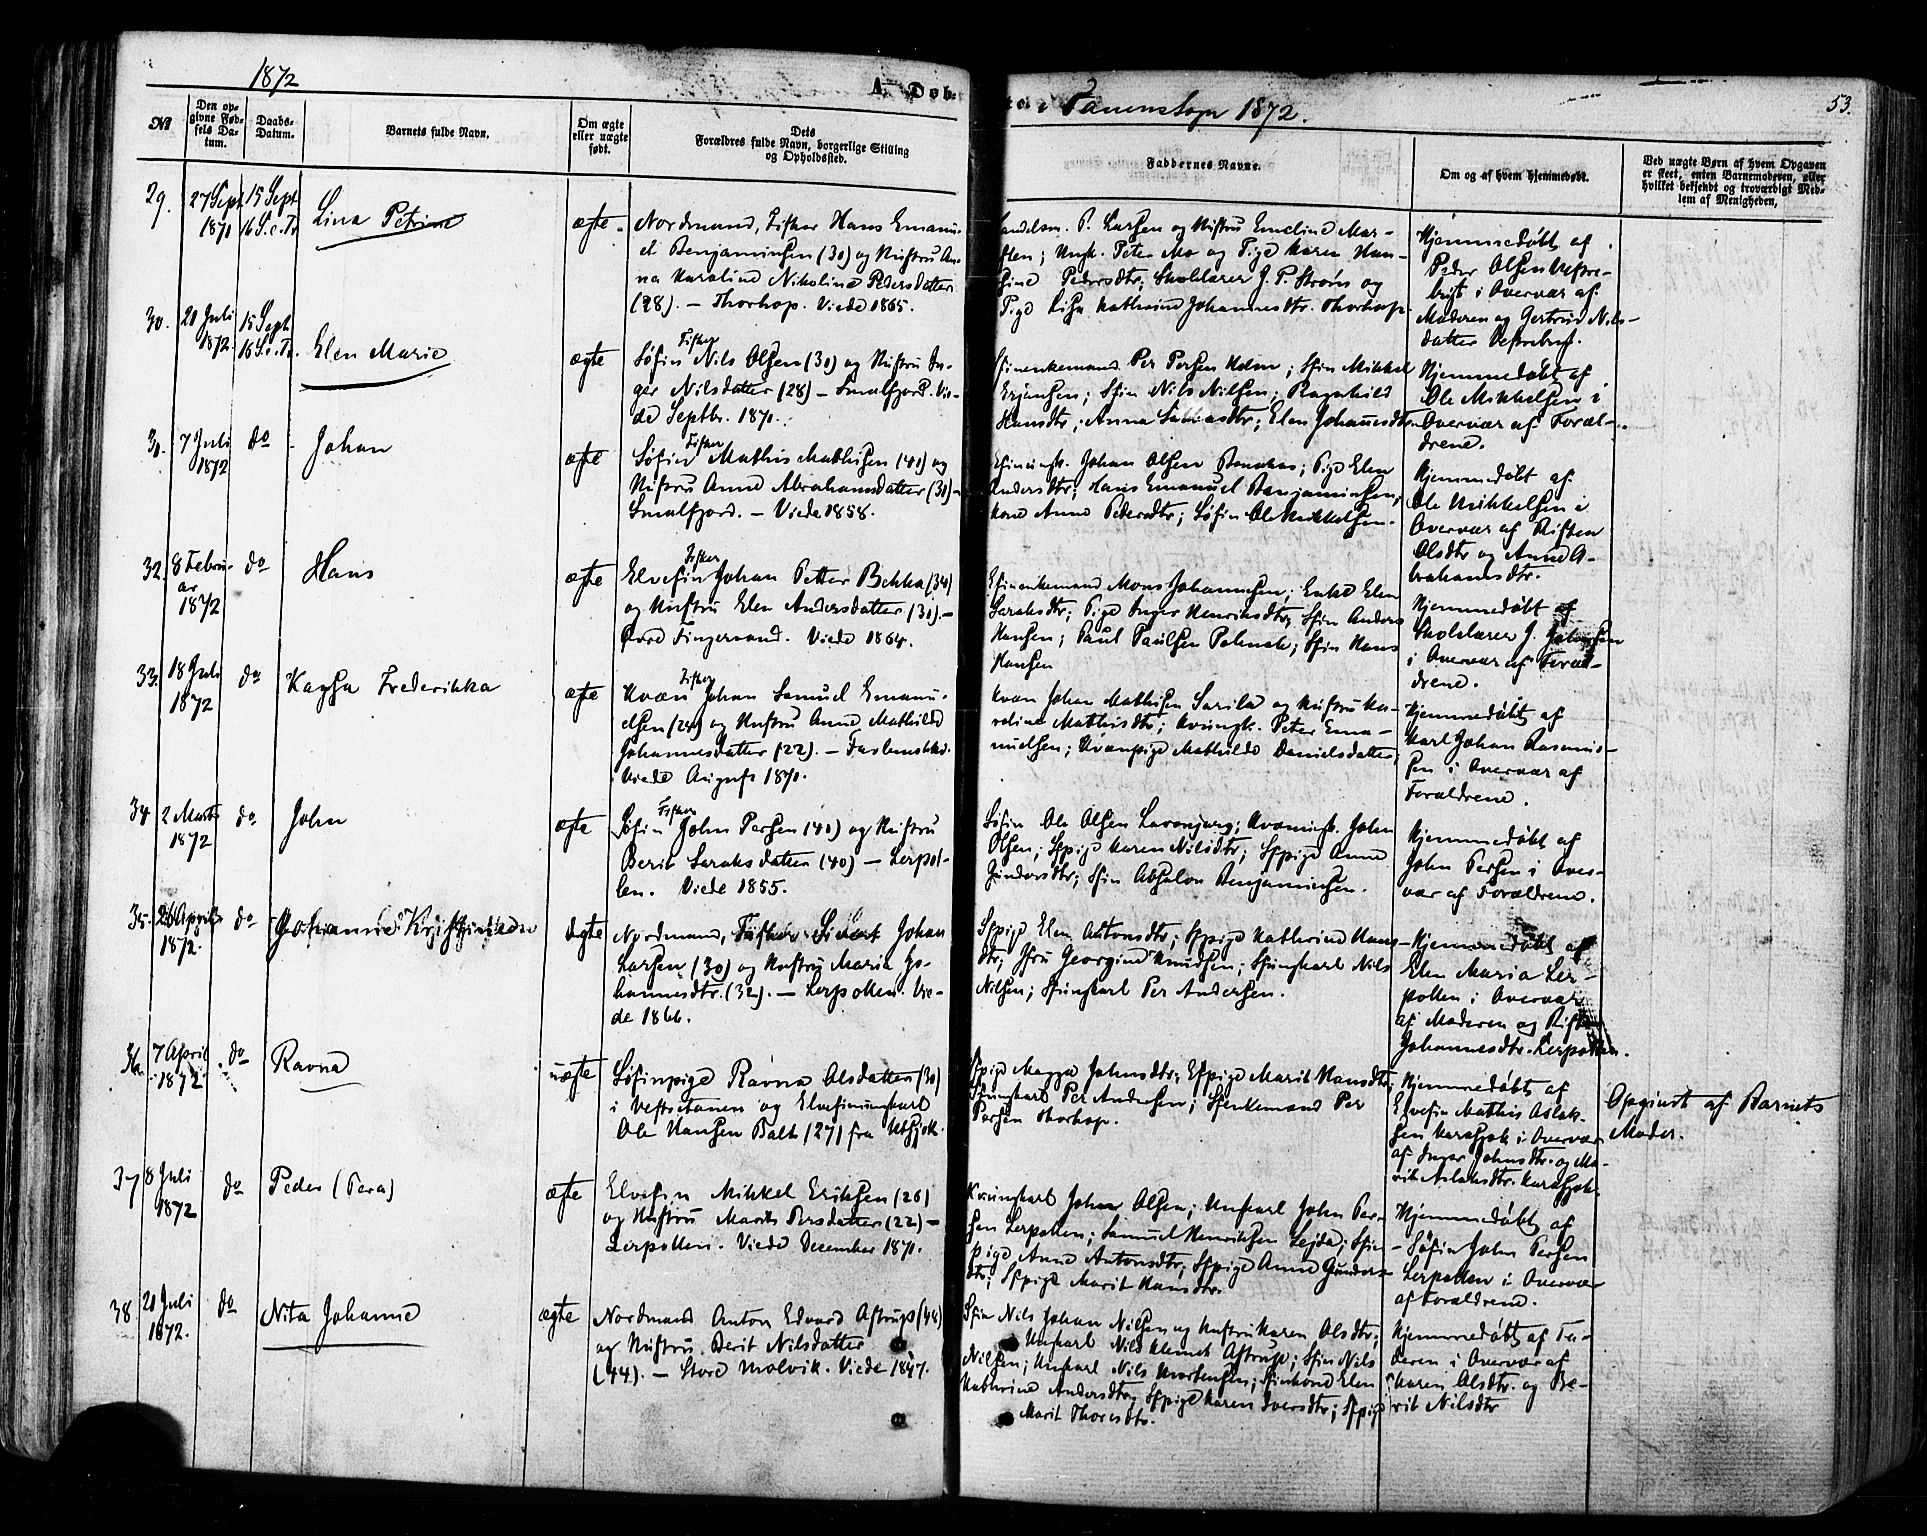 1872
A. Døb-
te i Tanens Sogn 1872.
53.
No
Den op-
givne Fød-
sels Da-
tum.
Daabs-
Datum.
Barnets fulde Navn.
Om ægte
eller uægte
født.
Dets
Forældres fulde Navn, borgerlige Stilling
og Opholdssted.
Faddernes Navne.
Om og af hvem hjemmedøbt.
Ved uægte Børn af hvem Opgaven
er skeet, enten Barnemoderen, eller
hvilket bekjendt og troværdigt Med-
lem af Menigheden.
29.
27 Sept
1871
15 Sept
16 S. e. Tr.
Lina Petrine
ægte
Nordmand, Fisker Hans Emanu-
el Benjaminsen (30) og Hustru An-
na Karoline Nikoline Pedersdatter
(28). – Thorhop. Viede 1865.
Handelsm. P. Larsen og Hustru Emeline Mar-
; Ungk. Peter Mo og Pige Karen Han-
sine Pedersdtr; Skolelærer J. P. Strøm og
Pige Lisa Kathrine Johannesdtr. Thorhop
Hjemmedøbt af
Peder Olsen Vestre-
bugt i Overvær af
Moderen og Gertrud Nils-
datter Vestrebugt.
30.
20 Juli
1872
15 Sept
16 S. e. Tr.
Elen Marie
ægte
Fisker
Søfin Nils Olsen (30) og Hustru In-
ger Nilsdatter (28) – Smalfjord. Vie-
de Septbr. 1870.
Sfinenkemand Per Persen Holm; Sfin Mikkel
Erjansen; Sfin Nils Nilsen; Ragnhild
Hansdtr; Anna dtr; Elen Johannesdtr.
Hjemmedøbt af
Ole Mikkelsen i
Overvær af Foræl-
drene.
30.
7 Juli
1872
do
Johan
ægte
Fisker
Søfin Mathis Mathisen (41) og
Hustru Anne Abrahamsdatter (30) –
Smalfjord. – Viede 1858.
Johan Olsen Bonakas; Pige Elen
Andersdtr; Hans Emanuel Benjaminsen;
Kone Anne Pedersdtr; Søfin Ole Mikkelsen.
Hjemmedøbt af
Ole Mikkelsen i
Overvær af Kristen
Olsdtr og Anne A-
brahamsdtr.
32.
8 Febru-
ar
1872
do
Hans
ægte
Fisker
Elvefin Johan Petter Bekka (34)
og Hustru Elen Andersdatter (30). –
Øvre Fingervand. Viede 1864.
Efinenkemand Mons Johannesen; Enke Elen
Saraksdtr; Pige Inger Henriksdtr; Sfin Anders
Hansen; Paul Paulsen Palmak; Sfin Hans
Hansen
Hjemmedøbt af
Skolelærer J. Johnsen
i Overvær af Foræl-
drene.
33.
18 Juli
1872
do
Kaysa Frederikka
ægte
Fisker
Kvæn Johan Samuel Emanu-
elsen (24) og Hustru Anne Mathilde
Johannesdatter (22). –
Viede August 1870.
Kvæn Johan Mathisen Sarila og Hustru Ka-
roline Mathisdtr; Kvungk. Peter Ema-
nuelsen; Kvænpige Mathilde Danielsdatter
Hjemmedøbt af
Karl Johan Rasmus-
sen i Overvær af
Forældrene.
34
2 Marts
1872
do
John
ægte
Fisker
Søfin John Persen (40) og Hustru
Berit Saraksdatter (40) – Lerpol-
len. Viede 1855.
Søfin Ole Olsen Lavonjarg; Kvænungk. John
Olsen; Sfpige Karen Nilsdtr; Sfpige Anne
Gundersdtr; Sfin Absalon Benjaminsen.
Hjemmedøbt af
John Persen i Over-
vær af Forældrene.
35.
26 April
1872.
do
Johanne Kristine
ægte
Nordmand, Fisker Johan
Larsen (30) og Hustru Maria Jo-
hannesdtr. (32). – Lerpollen. Vie-
de 1866.
Sfpige Elen Antonsdtr; Sfpige Kathrine Hans-
dtr; Fru Georgine Knudsen; Sfungkarl Nils
Nilsen; Sfungkarl Per Andersen.
Hjemmedøbt af
Elen Maria Ler-
pollen i Overvær
af Moderen og
Johannesdtr. Lerpollen.
36.
7 April
1872
do
Ravna
uægte
Søfinpige Ravna Olsdatter (30)
i Vestertanen og Elvefinungkarl
Ole Hansen Balto (27) fra Utsjok.
Sfpige Magga Johnsdtr; Efpige Marit Hansdtr;
Sfungkarl Per Andersen; Sfenkemand Per
Persen Thorhop.
Hjemmedøbt af
Elvefin Mathis Aslak-
sen Karasjok i Overvær
af Inger Johnsdtr. og Ma-
rit Aslaksdtr. Karasjok.
Opgivet af Barnets
Moder.
37
8 Juli
1872
do
Peder (Pera)
ægte
Elvefin Mikkel Eriksen (26)
og Hustru Marit Persdatter (22) –
Lerpollen. Viede December 1870.
Kvungkarl Johan Olsen; Ungkarl John Per-
sen Lerpollen; Samuel Henriksen Lejda; Sfin-
pige Anne Antonsdtr; Sfpige Anne Gunders-
dtr; Sfpige Marit Hansdtr.
Hjemmedøbt af
Søfin John Persen
Lerpollen i Overvær
af Forældrene.
38
20 Juli
1872.
do
Nita Johanne
ægte
Nordmand Anton Edvard Astrup (48)
og Hustru Berit Nilsdatter
(44). – Store Molvik. Viede 1847.
Sfin Nils Johan Nilsen og Hustru Karen Olsdtr;
Ungkarl Nils Klemet Astrup; Sfin Nils
Nilsen; Ungkarl Nils Mortensen; Sfinkone Elen
Kathrine Andersdtr; Sfpige Karen Iversdtr; Sfpige
Marit Thoresdtr.
Hjemmedøbt af Fa-
deren i Overvær af
Karen Olsdtr. og Be-
rit Nilsdtr